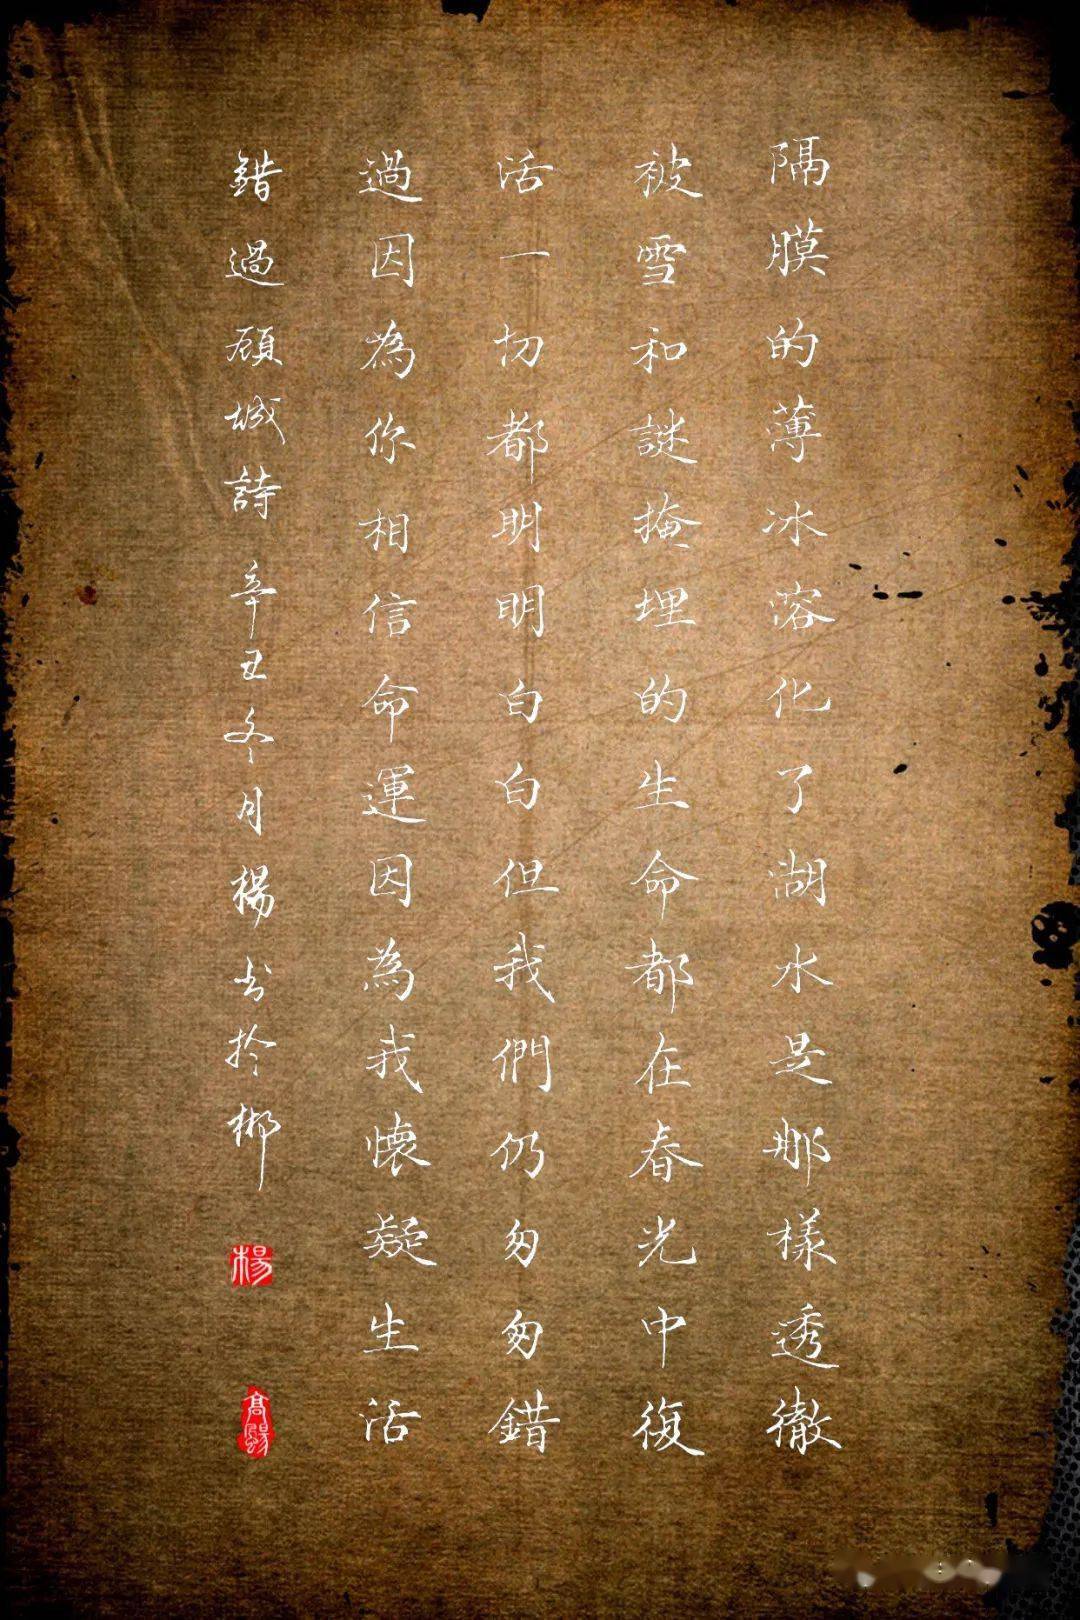 隔膜的薄冰溶化了湖水是那樣透徹
被雪和謎掩埋的生命都在春光中復
活一切都明明白白但我們仍匆匆錯
過因為你相信命運因為我懷疑生活
錯過顧城詩 辛丑冬月楊书於郴
楊